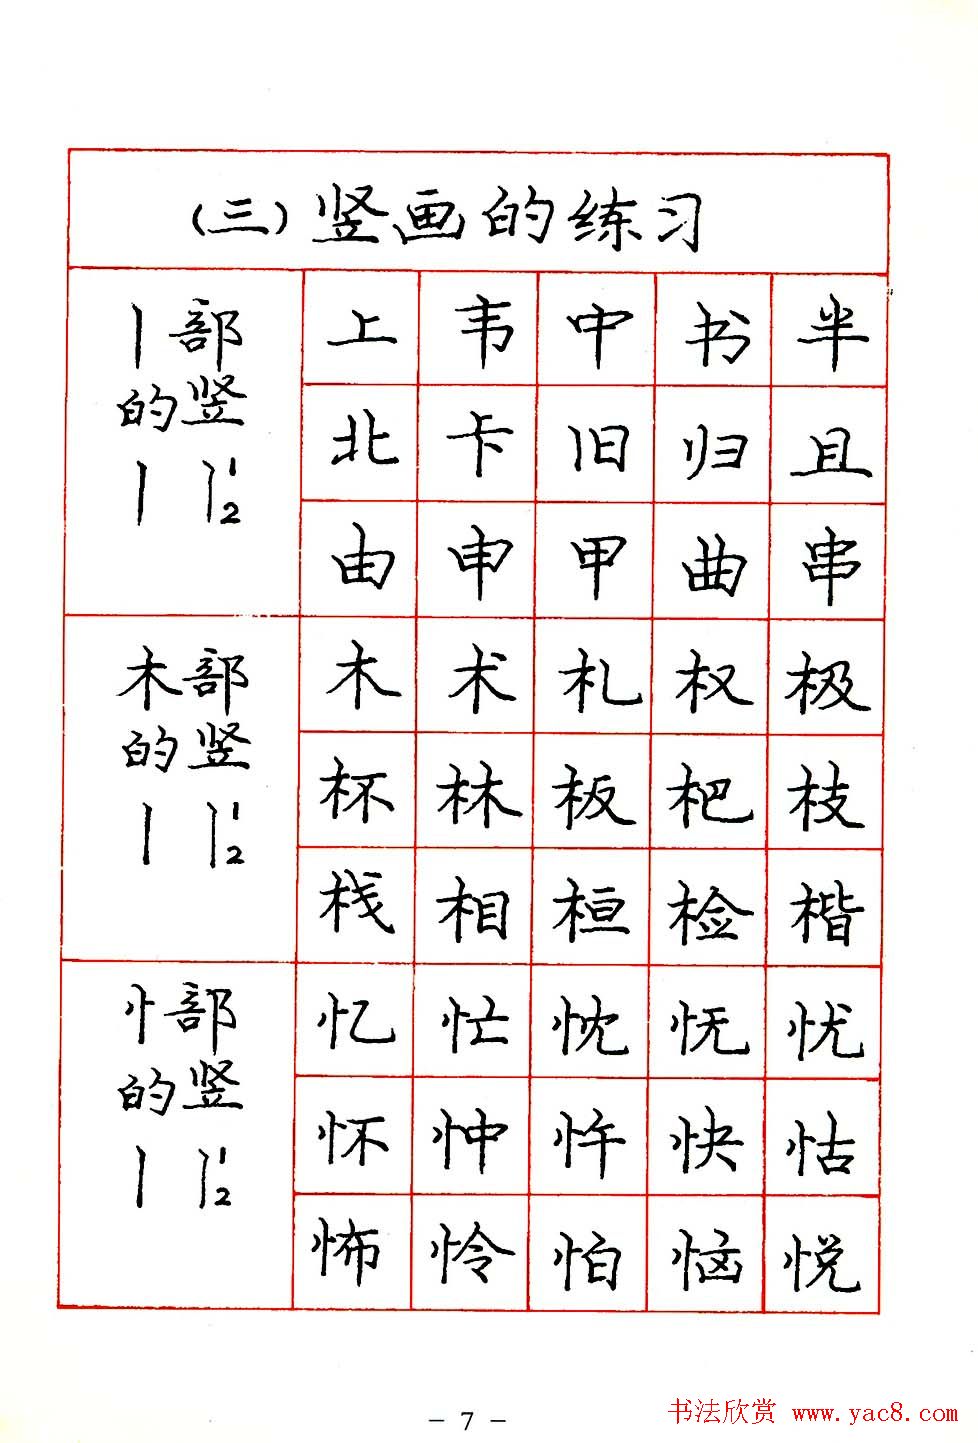 （三）竖画的练习
丨部的竖
丨 丨 1 2
上 韦 中 书 半
北 卡 旧 归 且
由 申 甲 曲 串
木部的竖
丨 丨 1 2
木 术 札 权 极
杯 林 板 杷 枝
栈 相 桓 检 楷
忄部的竖
丨 丨 1 2
忆 忙 忱 怃 忧
怀 忡 忤 快 怙
怖 怜 怕 恼 悦
- 7 -
书法欣赏 www.yac8.com